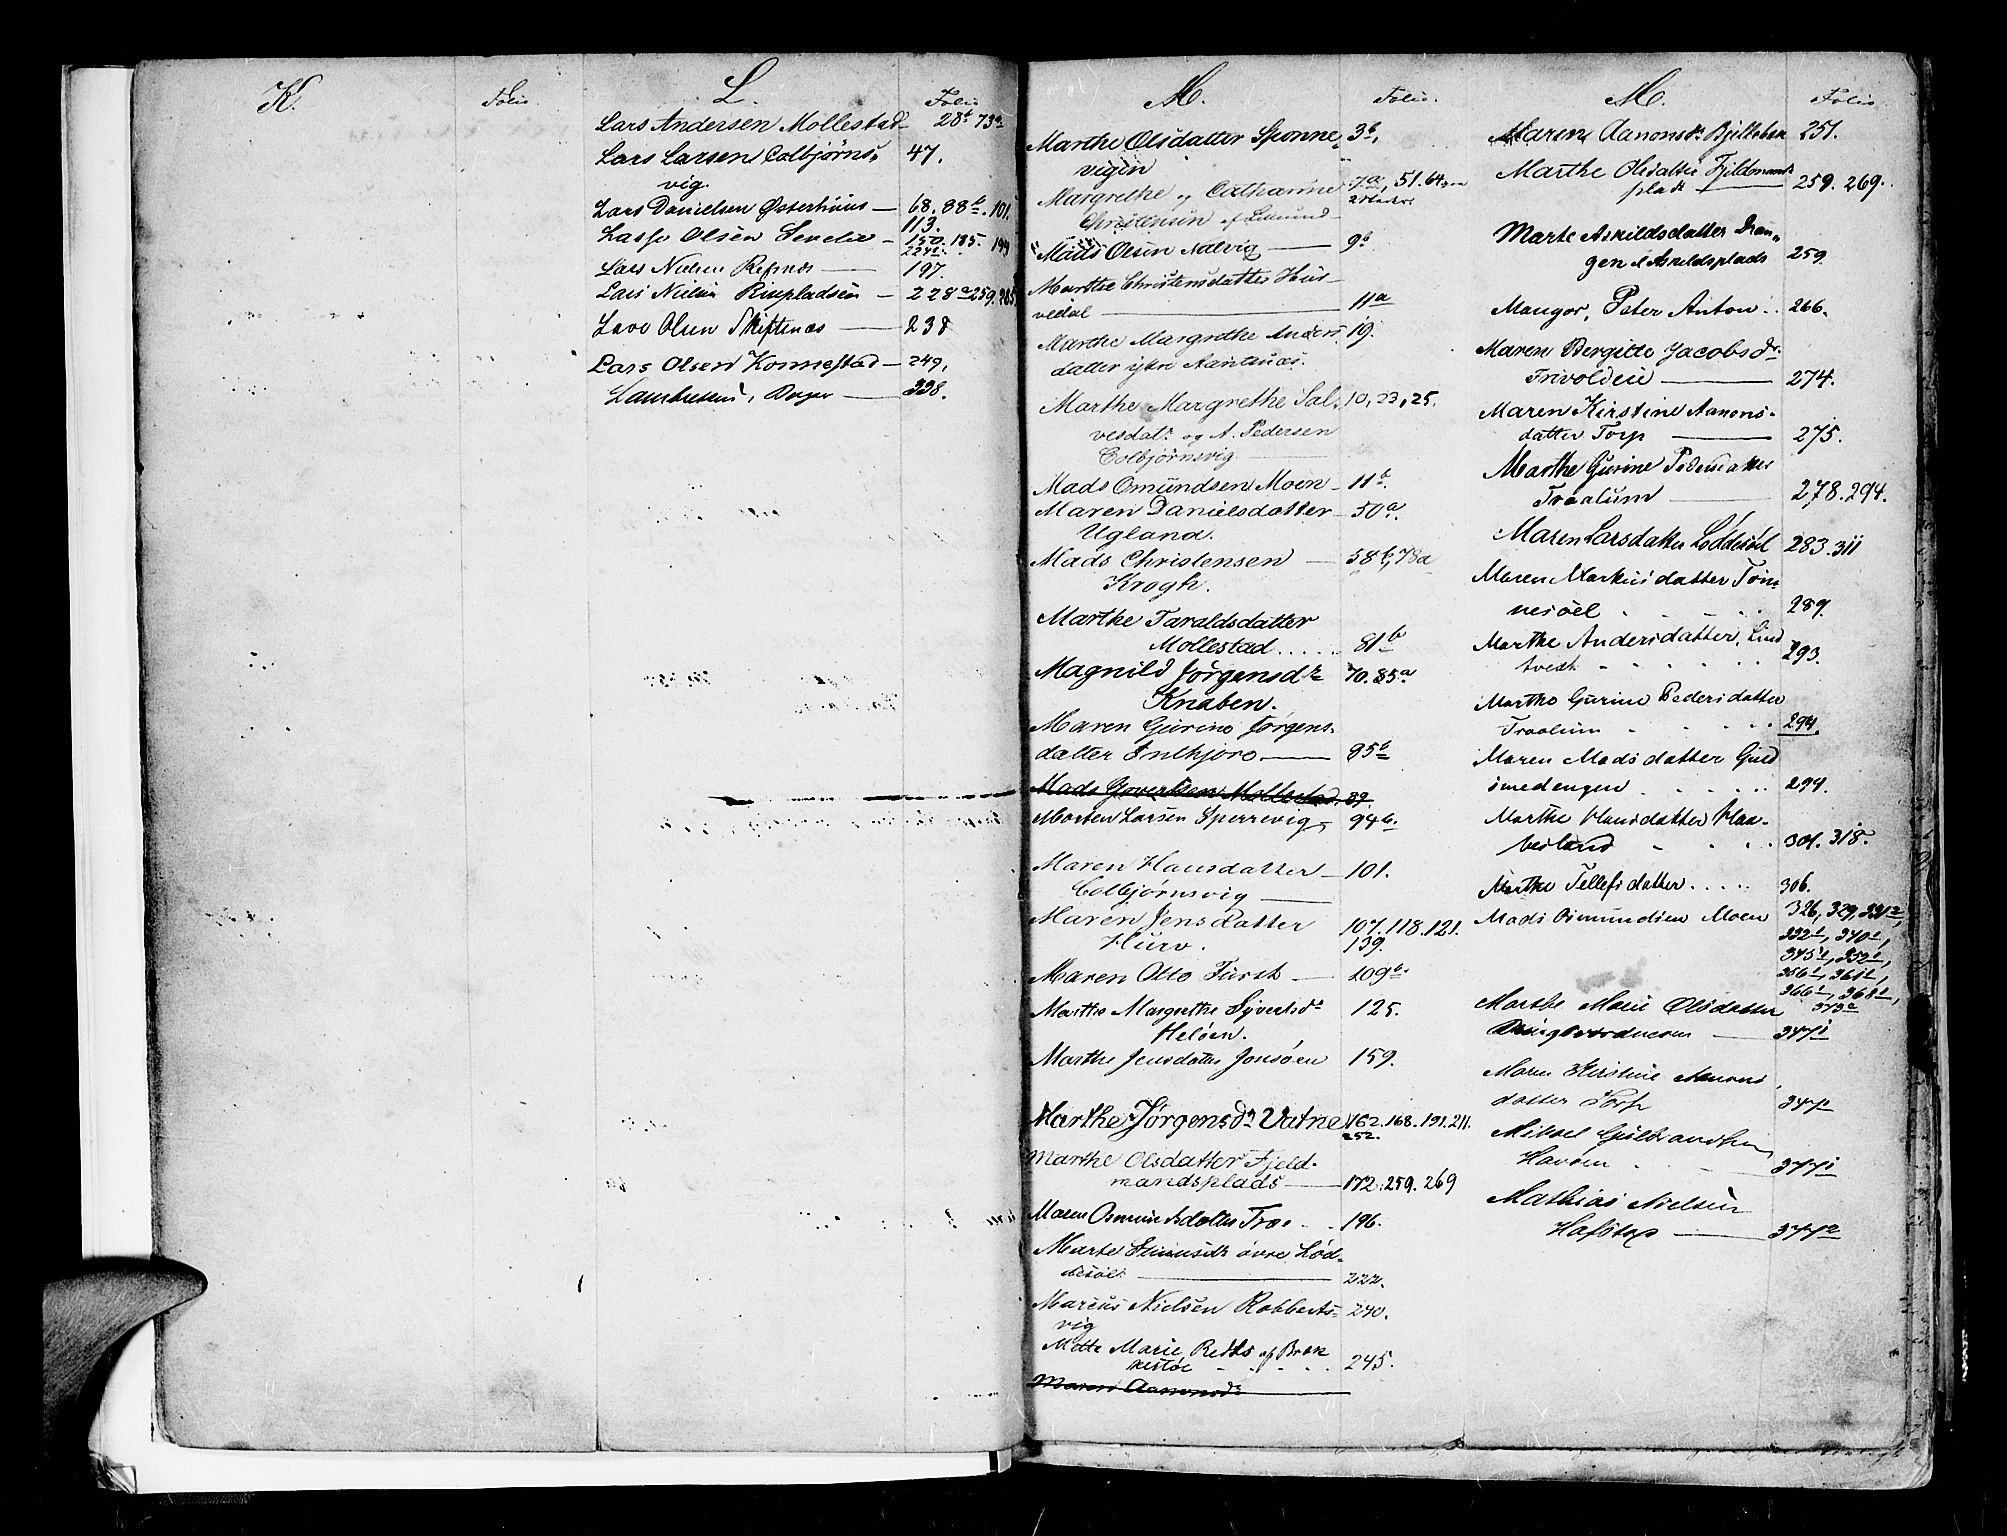 K.
Folio.
L.
Folio
Lars Andersen Mollestad 28b 73a
Lars Larsen Colbjørns- 47.
vig.
Lars Danielsen Østerhuus — 68. 88b. 101.
113.
Lasse Olsen — 150. 185. 199
Lars Nielsen Refsnes — 197.
Lars Nielsen Risepladsen — 228a 259. 285
Lave Olsen Skiftenæs — 238
Lars Olsen Konnestad — 249.
Lauritsen, Birger — 338.
M.
Folio.
Marthe Olsdatter Sponne- 3b,
vigen
Margrethe og Cathrine 7a, 51. 64
Christensen af
Mads Olsen Nalvig — 9b
Marthe Christensdatter Hus-
vedal — 11a
Marthe Margrethe Anders 19.
datter ytre
Marthe Margrethe Sal- 10, 23, 25.
vesdatr og A. Pedersen
Colbjørnsvig —
Mads Omundsen Moen — 11b.
Maren Danielsdatter — 50a.
Ugland.
Mads Christensen — 58b, 73a
Krogh.
Marthe Taraldsdatter
Mollestad..... 81b
Magnild Jørgensdr 70. 85a
Knaben.
Maren Gurine Jørgens-
datter Inthjore — 85b
Mads Goverksen Mollestad. 89.
Morten Larsen Sperrevig, 94b.
Maren Hansdatter — 101.
Colbjørnsvig —
Maren Jens Datter 107. 118. 121.
Hurv. 139.
Maren Otto Fürst — 109b.
Marthe Margrethe Syvertsdr 125.
Heløen.
Marthe Jensdatter Jonsøen 159.
Marthe Jørgensdr Vatne 162. 168. 191. 211.
252.
Marthe Olsdatter Fjeld-
mandsplads — 172. 259. 269
Maren Osmundsdatter Træ. . . 196.
Marte øvre Lød-
desøl — 222.
Marcus Nielsen Robberts- 240.
vig
Mette Marie Reths af Bræk
kestøe . . . 245.
Maren Aanonsdr
M.
Folio
Maren Aanonsdr 251.
Marthe Olsdatter Fjeldmands
plads 259. 269.
Marte Askildsdatter
gen el Askildsplads 259
Mangor, Peter Anton . . 266.
Maren Bergitte Jacobsdr.
Frivolden — 274.
Maren Kirstine Aanons-
datter Torp — 275.
Marthe Gurine Pedersdatter
Traalum — 278. 294.
Maren Larsdatter Løddesøl 283. 311
Maren Markusdatter Tøn-
nesøel . . . . 289.
Marthe Andersdatter, Lind
tvedt . . . . . 293.
Marthe Gurine Pedersdatter
Traalum . . . . 294.
Maren Madsdatter Guld
smedengen . . . . . 294.
Marthe Hansdatter Haa-
besland . . . . 301. 318.
Marthe Tellefsdatter. . . . . 306.
Mads Osmundsen Moen 326, 329, 331a,
332b, 340b,
345b, 352b,
356b, 361b,
366b, 368b,
Marthe Marie Olsdatter 373a
— 347b
Maren Kirstine Aanons
datter Torp 347b
Mikael Gulbrandsen
Havøen . . 377b
Mathias Nielsen
Hafstop — 377a